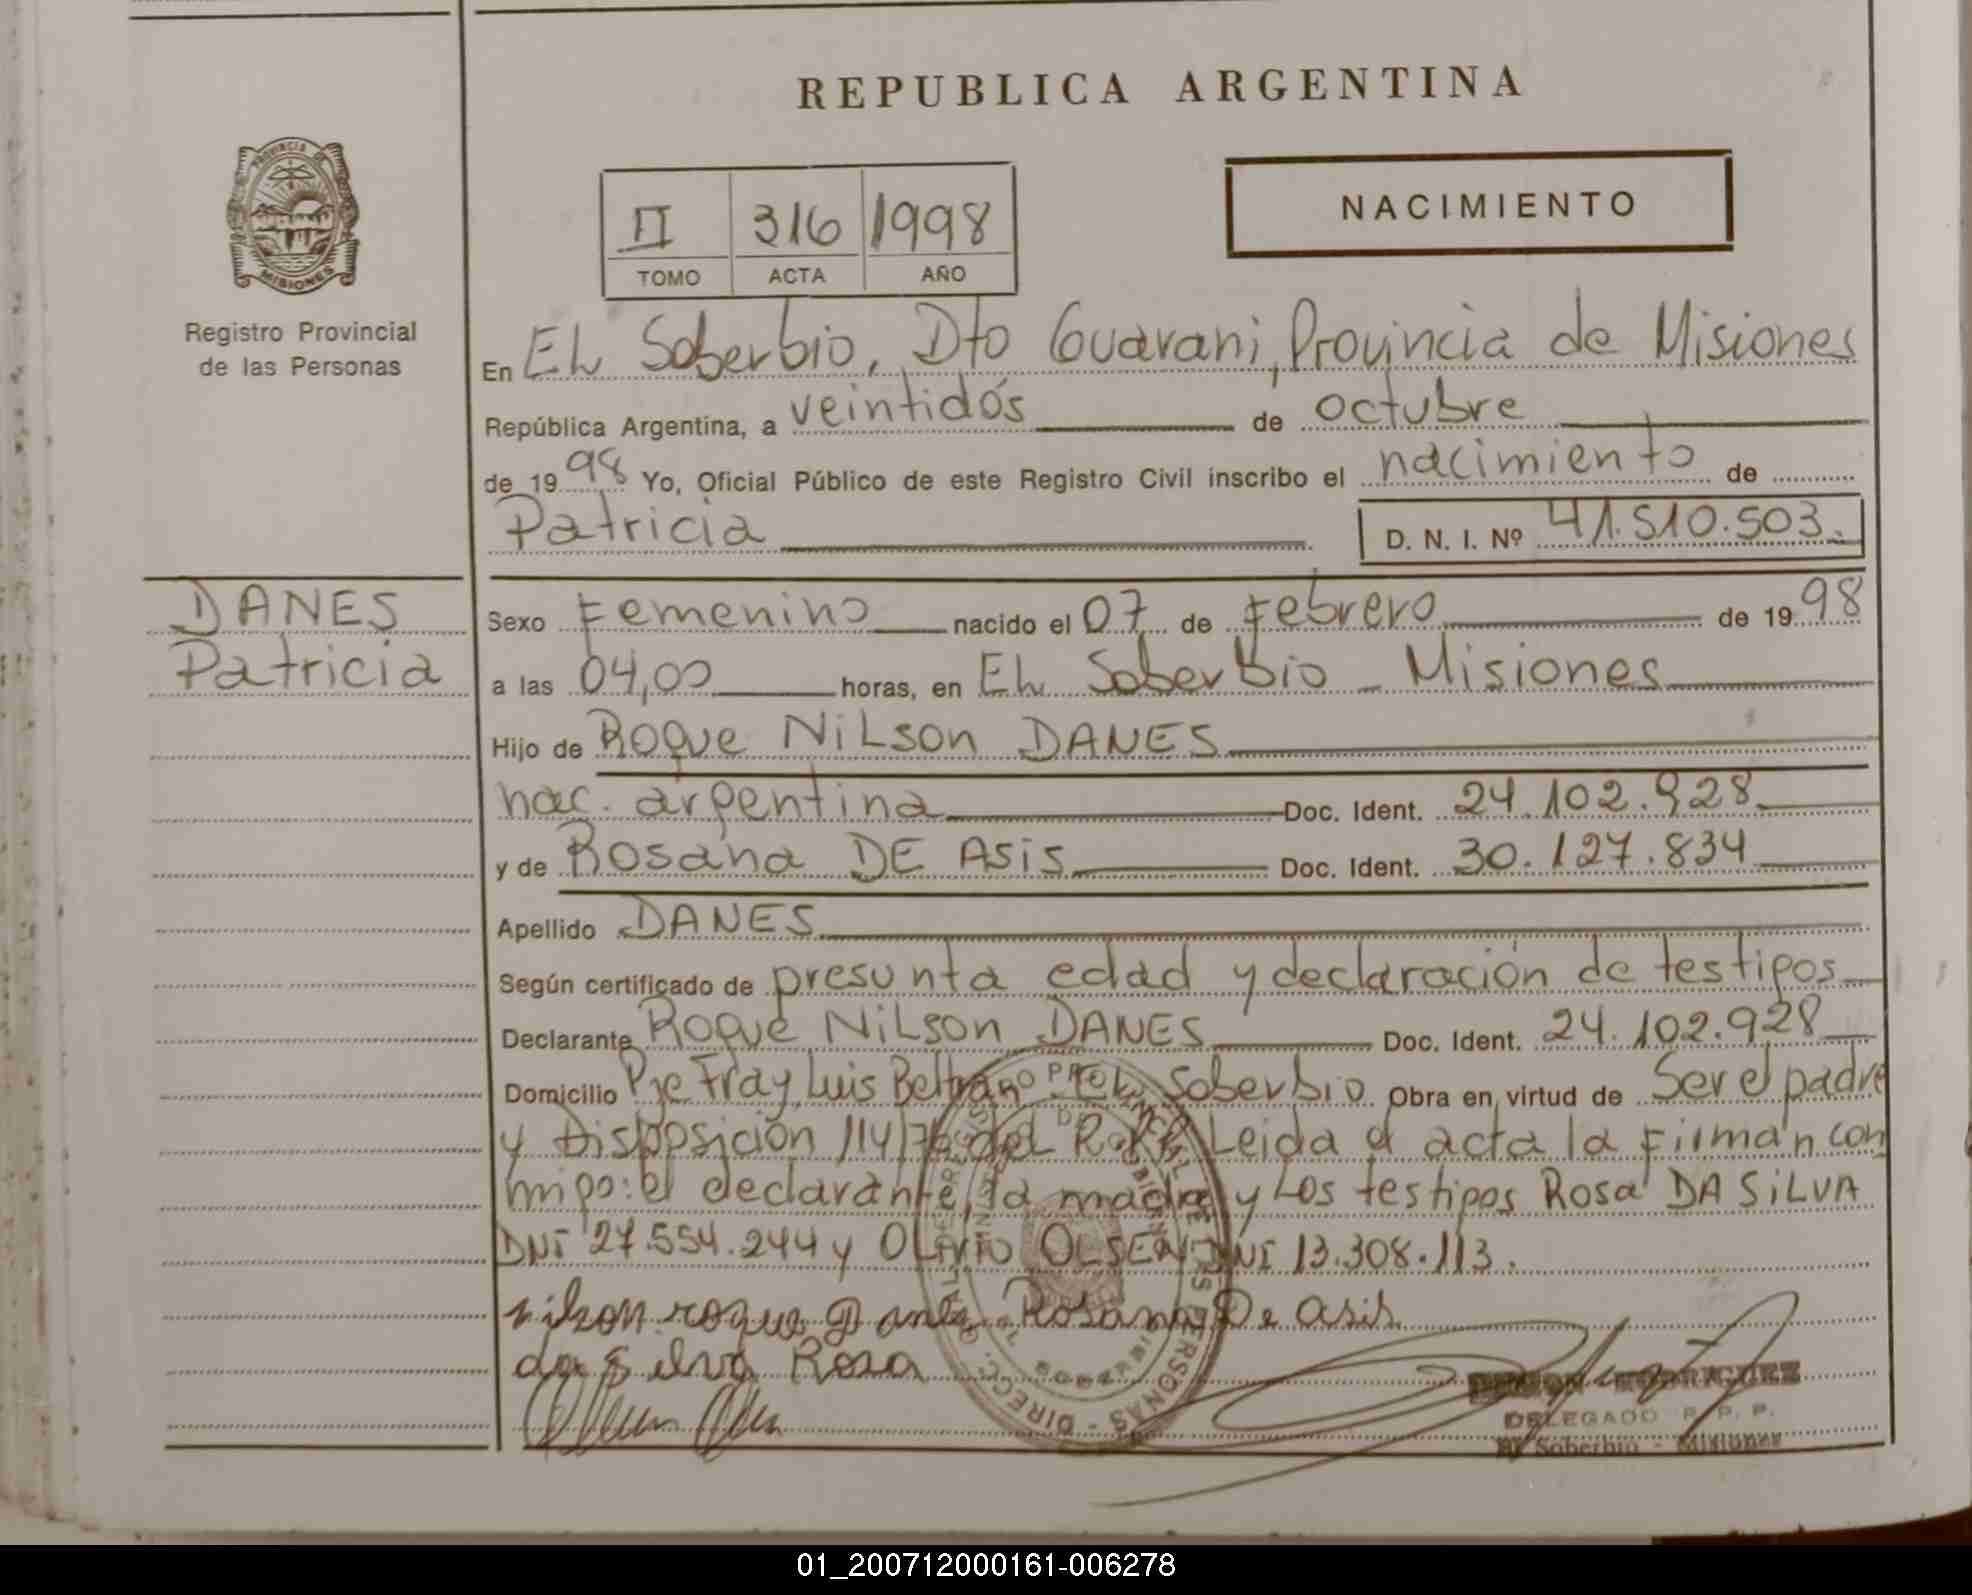 REPUBLICA ARGENTINA
PROVINCIA DE
MISIONES
Registro Provincial
de las Personas
II 316 1998
TOMO ACTA AÑO
NACIMIENTO
En EL Soberbio, Dto Guarani, Provincia de Misiones
República Argentina, a veintidós de octubre
de 1998 Yo, Oficial Público de este Registro Civil inscribo el nacimiento de
Patricia D. N. I. Nº 41.510.503.
DANES
Patricia
Sexo Femenino nacido el 07 de Febrero de 1998
a las 04,00 horas, en EL Soberbio - Misiones
Hijo de Roque NiLson DANES
nac. argentina Doc. Ident. 24.102.928
y de Rosana DE ASiS Doc. Ident. 30.127.834
Apellido DANES
Según certificado de presunta edad y declaración de testigos
Declarante Roque NiLson DANES Doc. Ident. 24.102.928
Domicilio Pje Fray Luis Beltrán - EL Soberbio Obra en virtud de Ser el padre
y Disposición 114/76 del Leida el acta la Firman con
migo: el declarante, la madre y Los testigos Rosa DA SiLVA
DNI 27.554.244 y OLIVIO OLSEN DNI 13.308.113.
nilson roque Danes Rosana De asis
da Silva Rosa
RODRIGUEZ
DELEGADO R. P. P.
El Soberbio - Misiones
01_200712000161-006278